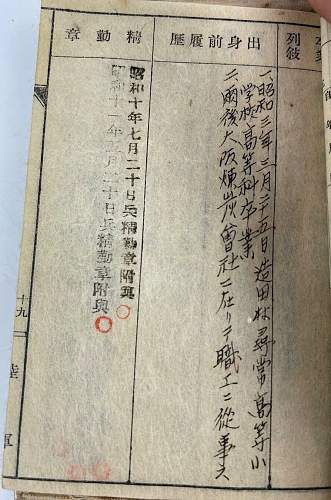 列叙
出身前履歴
一、昭和三年三月二十五日造田村尋常高等小
学校高等科卒業
二、爾後大阪煉炭会社ニ在リテ職工ニ従事ス
精勤章
昭和十年七月二十日兵精勤章附与
昭和十一年五月二十日兵精勤章附與
十九
陸
軍